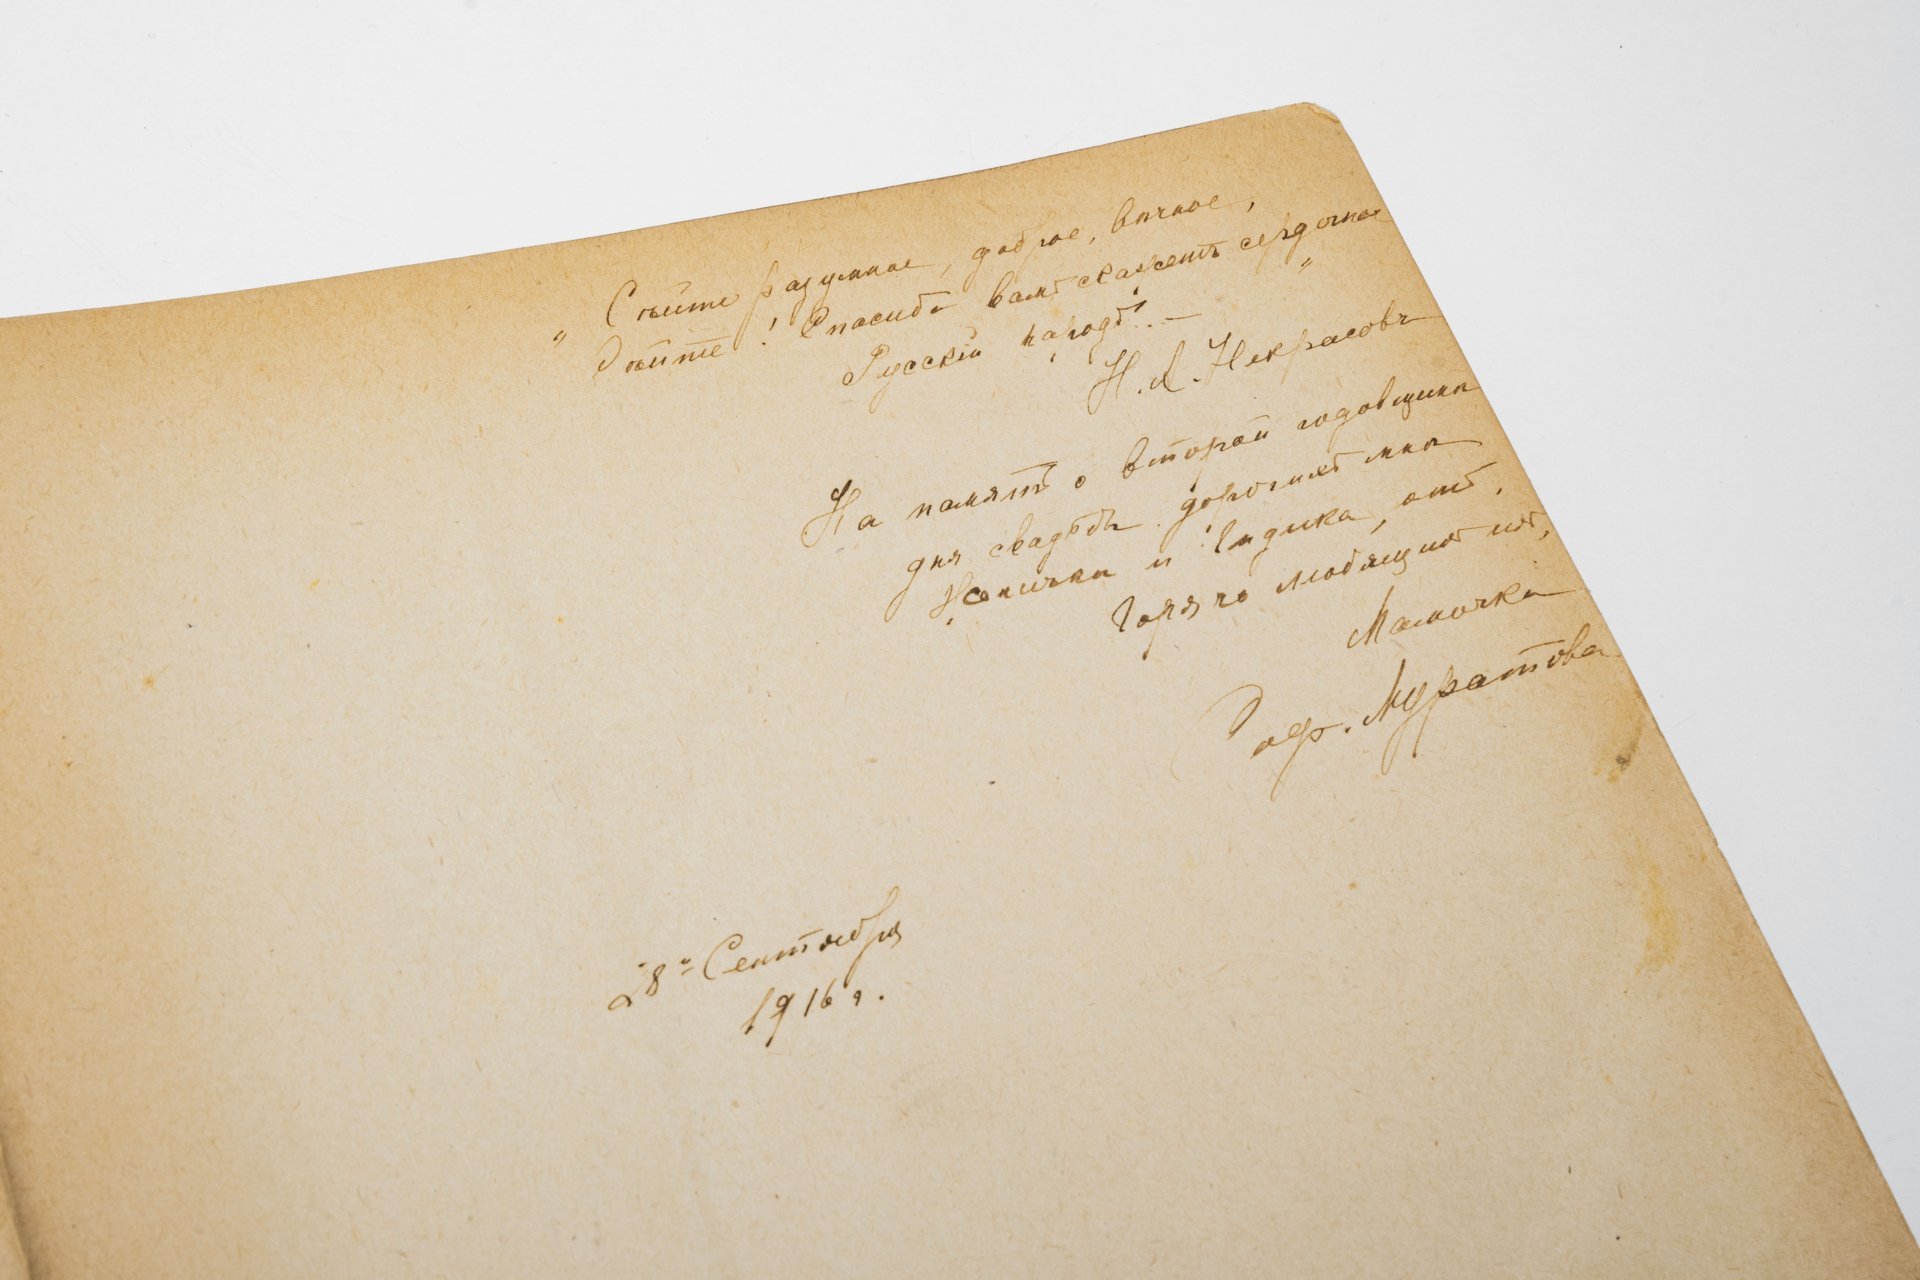 „Сѣйте разумное, доброе, вѣчное,
Сѣйте! Спасибо вамъ скажетъ сердечное
Русскій народъ!.. —"
Н. А. Некрасовъ
На память о второй годовщинѣ
дня свадьбы дорогихъ мнѣ
и отъ
горячо любящей ихъ,
Мамочки
Муратова
28го Сентября
1916 г.